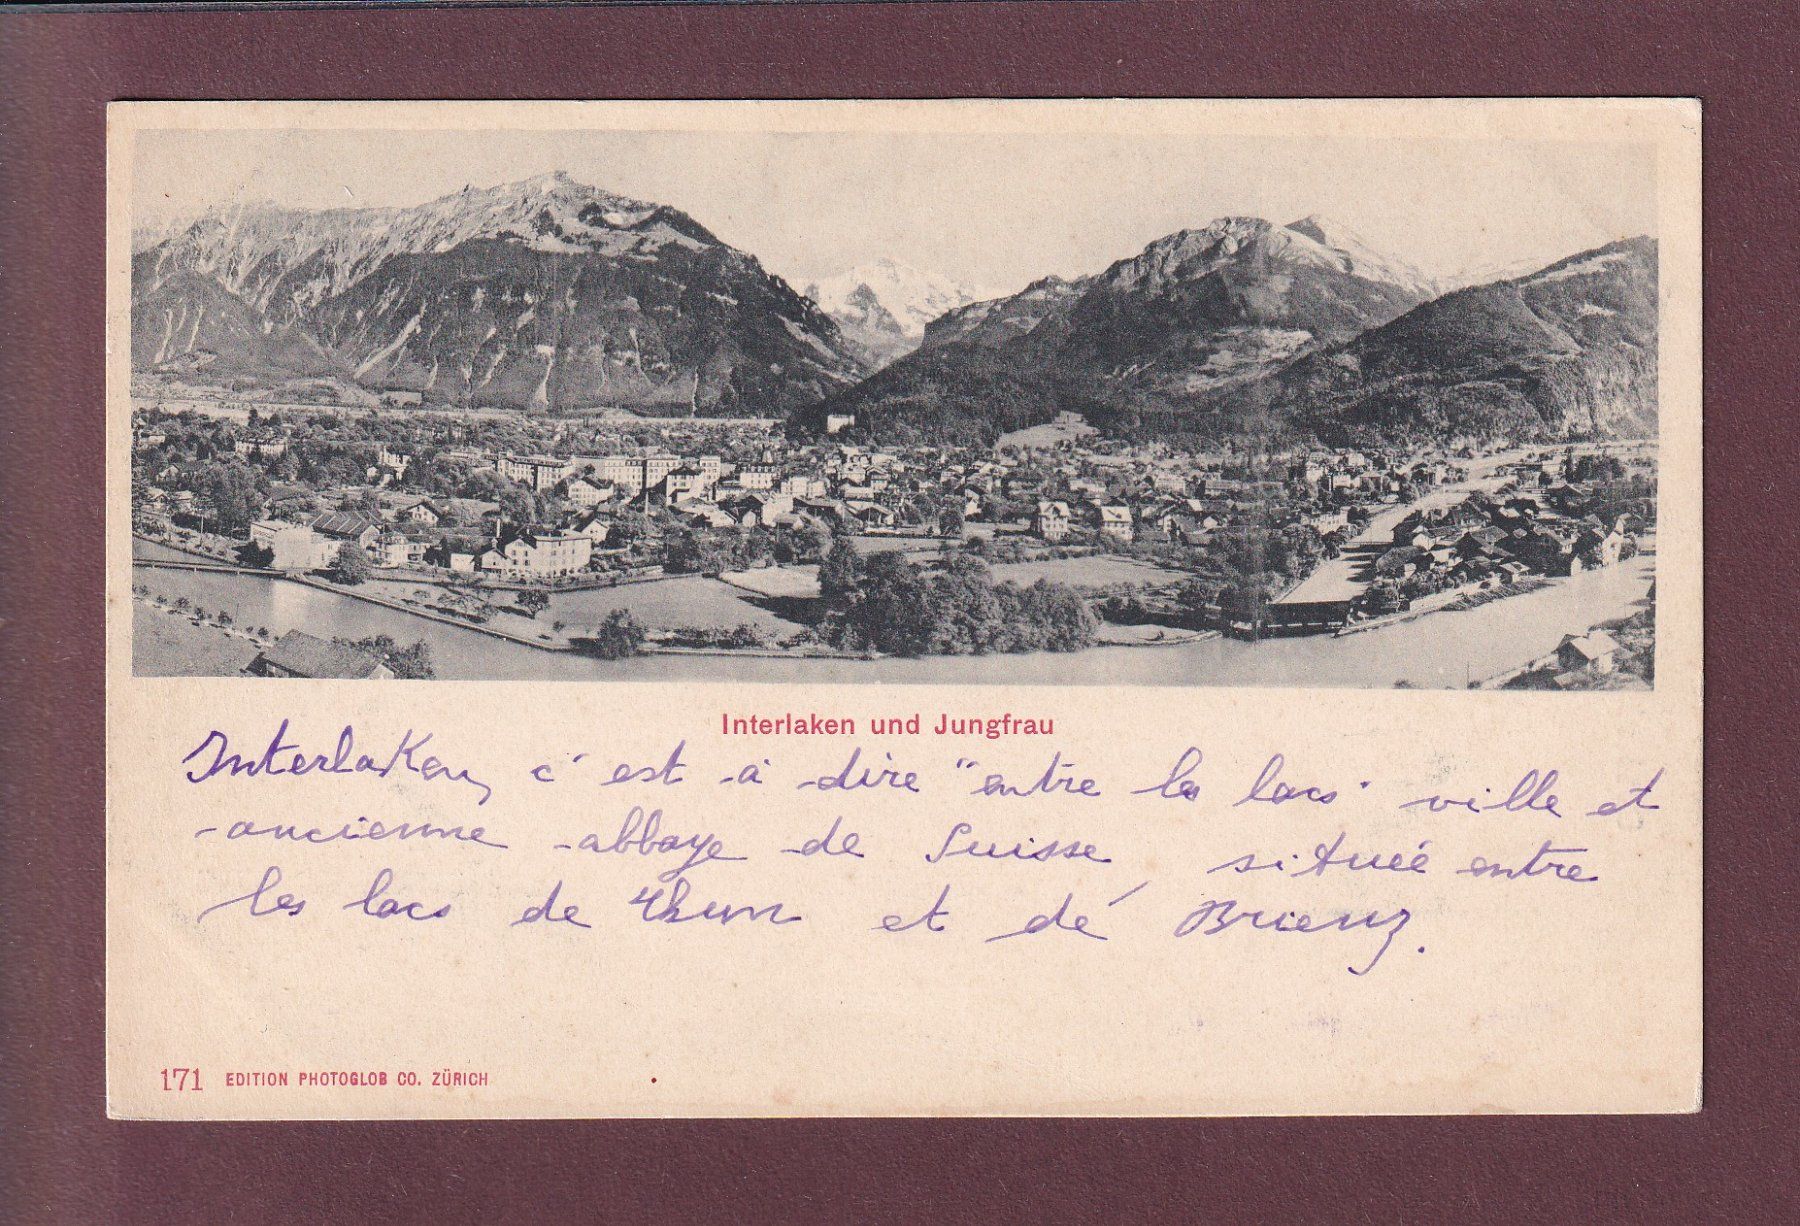 Interlaken und Jungfrau
Interlaken, c'est à dire "entre les lacs" ville et
ancienne abbaye de Suisse, située entre
les lacs de Thun et de Brienz.
171 EDITION PHOTOGLOB CO. ZÜRICH